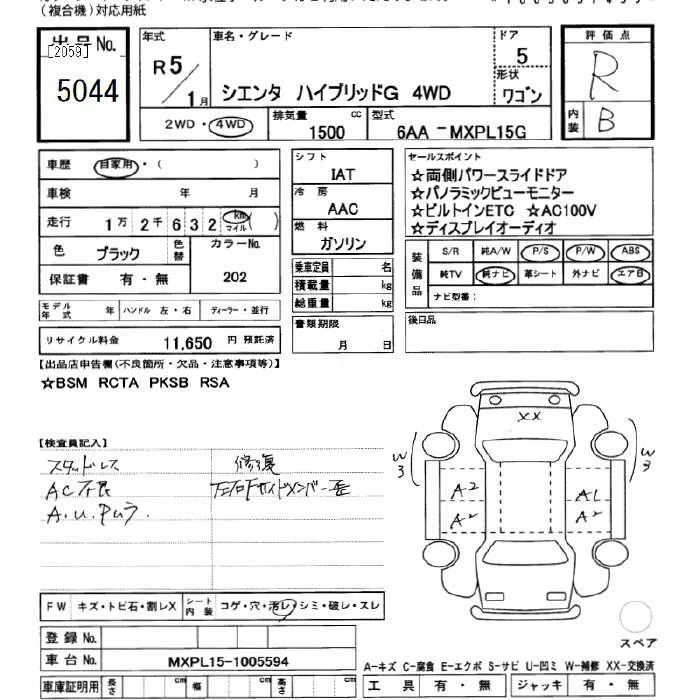 (複合機)対応用紙
出品No.
[2059]
5044
年式
R5/1月
車名・グレード
シエンタ ハイブリッドG 4WD
ドア
5
形状
ワゴン
評価点
R
内装
B
2WD・4WD
排気量
1500 cc
型式
6AA-MXPL15G
車歴 自家用・( )
車検 年 月
走行 1万2千632 km マイル( )
色 ブラック 色替 カラーNo.
保証書 有・無 202
モデル年式 年 ハンドル 左・右 ディーラー・並行
リサイクル料金 11,650 円 預託済
シフト
IAT
冷房
AAC
燃料
ガソリン
乗車定員 名
積載量 kg
総重量 kg
書類期限
月 日
セールスポイント
☆両側パワースライドドア
☆パノラミックビューモニター
☆ビルトインETC ☆AC100V
☆ディスプレイオーディオ
装備品
S/R 純A/W P/S P/W ABS
純TV 純ナビ 革シート 外ナビ エアB
ナビ型番:
後日品
【出品店申告欄(不良箇所・欠品・注意事項等)】
☆BSM RCTA PKSB RSA
【検査員記入】
スタッドレス 修復
AC不良
A.U.Pムラ
XX
W3 W3
A2 A1
A2 A2
FW キズ・トビ石・割レX シート内装 コゲ・穴・汚レ・シミ・破レ・スレ
登録No.
車台No. MXPL15-1005594
車庫証明用 長さ cm 幅 cm 高さ cm
スペア
A-キズ C-腐食 E-エクボ S-サビ U-凹ミ W-補修 XX-交換済
工具 有・無 ジャッキ 有・無